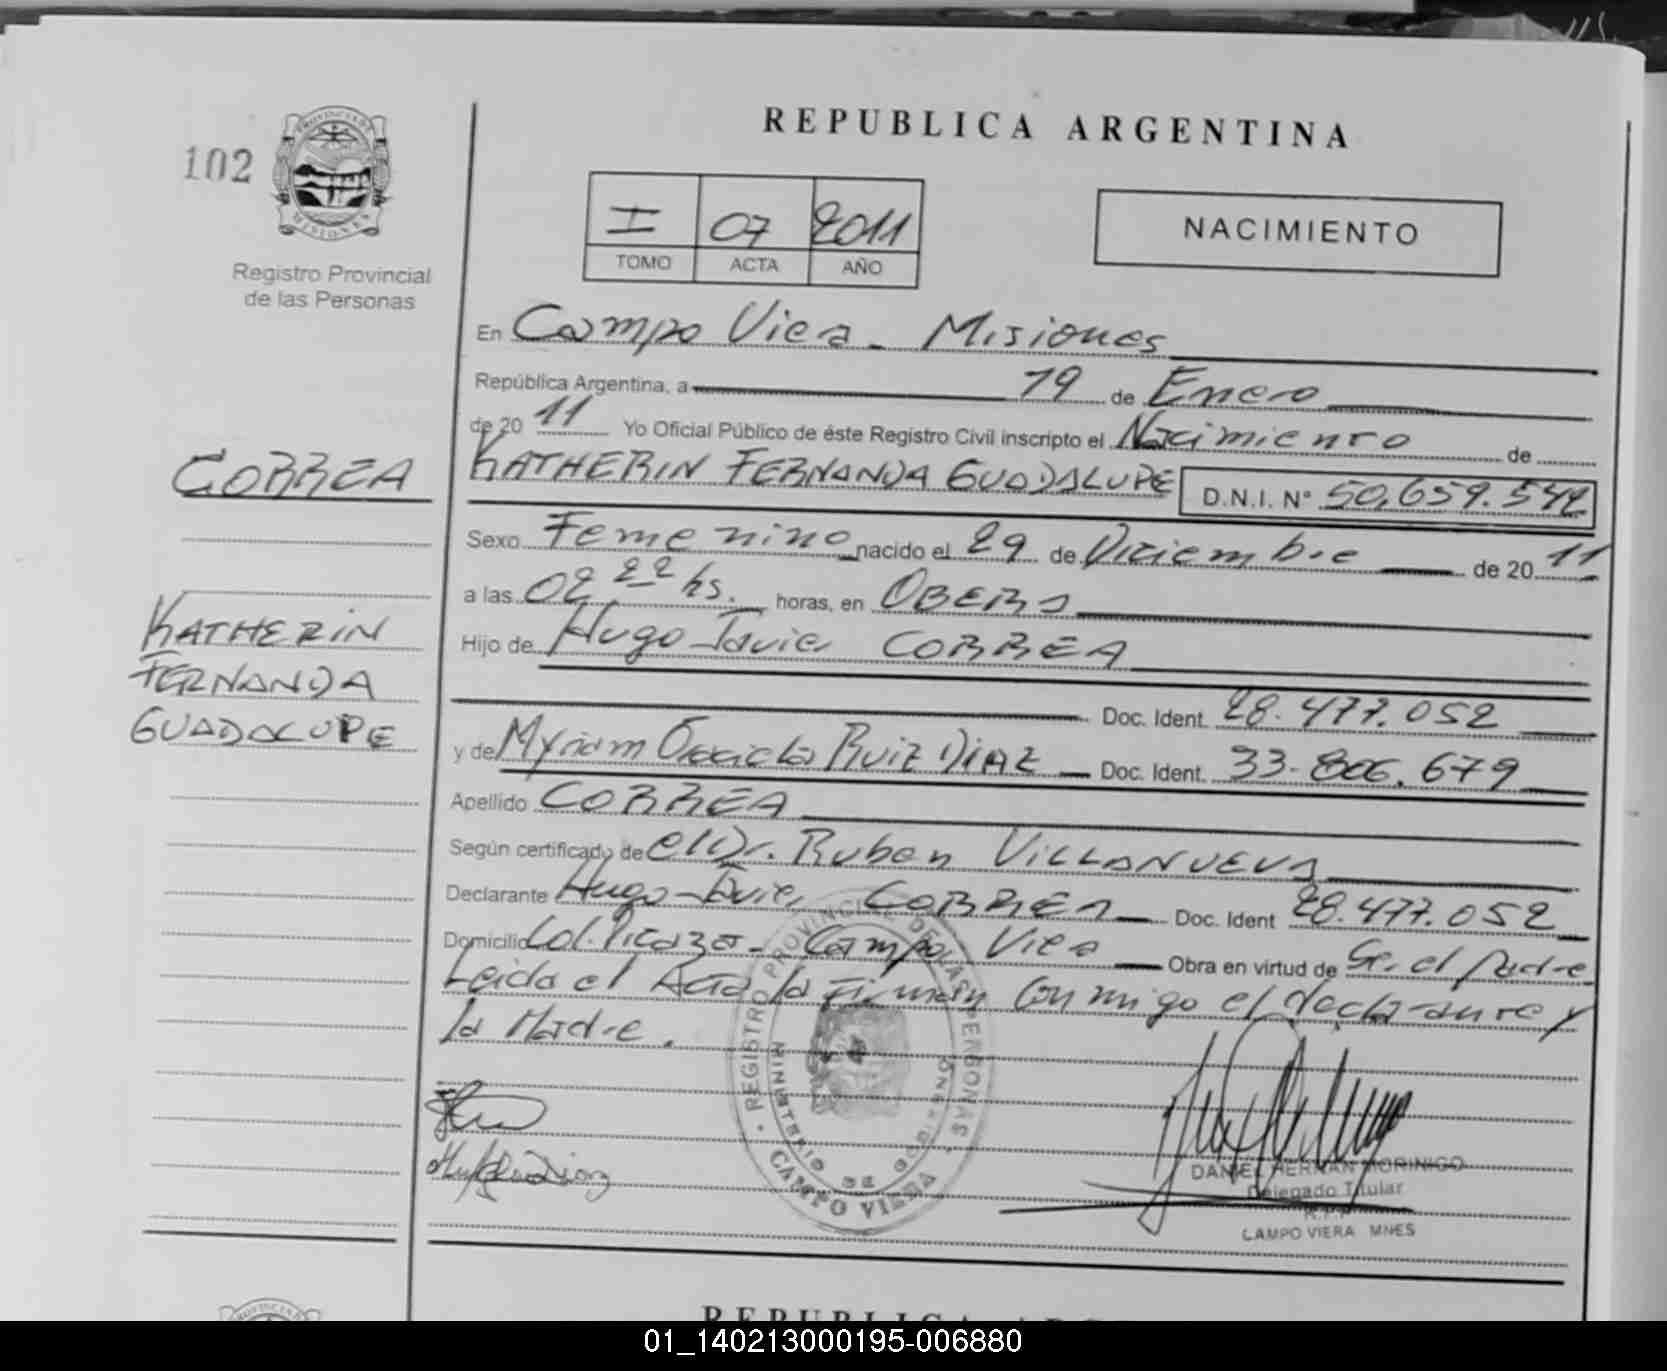 REPUBLICA ARGENTINA
102
PROVINCIA DE
MISIONES
Registro Provincial
de las Personas
I 07 2011
TOMO ACTA AÑO
NACIMIENTO
En Campo Viera - Misiones
República Argentina, a 19 de Enero
de 20 11 Yo Oficial Público de éste Registro Civil inscripto el Nacimiento de
KATHERIN FERNANDA GUADALUPE D.N.I. N° 50.659.542
Sexo Femenino nacido el 29 de Diciembre de 20 11
a las 02 22 hs. horas, en OBERA
Hijo de Hugo Javier CORREA
Doc. Ident. 28.477.052
y de Myriam RUIZ DIAZ Doc. Ident. 33.806.679
Apellido CORREA
Según certificado de el Dr. Ruben VILLANUEVA
Declarante Hugo Javier CORREA Doc. Ident 28.477.052
Domicilio Col. Picaza - Campo Viera Obra en virtud de Ser el padre
Leida el Acta la Firman Conmigo el declarante y
la Madre.
CORREA
KATHERIN
FERNANDA
GUADALUPE
REGISTRO PROVINCIAL DE LAS PERSONAS
MINISTERIO DE GOBIERNO
CAMPO VIERA
DANIEL HERNAN MORINIGO
Delegado Titular
R.P.P.
CAMPO VIERA MNES
PROVINCIA DE
REPUBLICA ARG
01_140213000195-006880